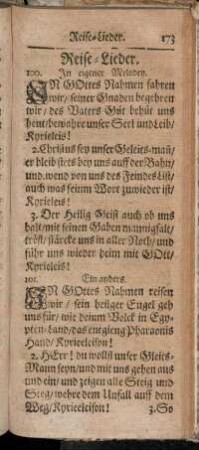 Reise-Lieder. 173
Reise-Lieder.
100. In eigener Melodey.
IN GOttes Nahmen fahren
wir/ seiner Gnaden begehren
wir/ des Vaters Güt behüt uns
heut/bewahre unser Seel und Leib/
Kyrieleis!
2. Christus sey unser Geleits-mañ/
er bleib stets bey uns auff der Bahn/
und wend von uns des Feindes List/
auch was seinem Wort zuwieder ist/
Kyrieleis!
3. Der Heilig Geist auch ob uns
halt/mit seinen Gaben mannigfalt/
tröst/ stärcke uns in aller Noth/ und
führ uns wieder heim mit GOtt/
Kyrieleis!
101. Ein anders.
IN GOttes Nahmen reisen
wir/ sein heiliger Engel geh
uns für/ wie deinm Volck in Egy-
pten-Land/das entgieng Pharaonis
Hand/ Kyrieeleison!
2. HErr! du wolls unser Gleits-
Mann seyn/und mit uns gehen aus
und ein/ und zeigen alle Steig und
Steg/ wehre dem Unfall auff dem
Weg/Kyrieeleison! 3. So